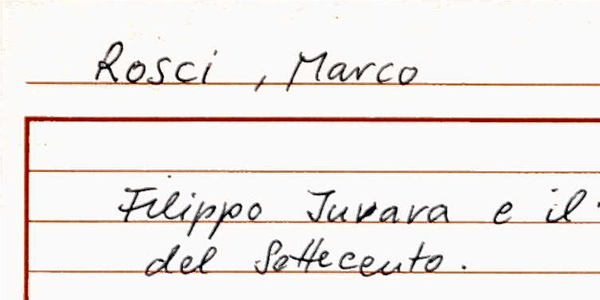 Rosci, Marco
Filippo Juvara e il
del Settecento.